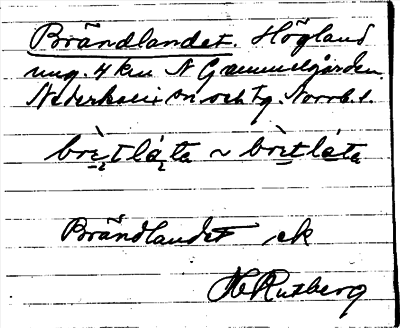 Brändlandet. Högland
ung. 4 km N Gammelgården.
Nederkalix sn. och tg. Norrb. l.
bòi̯tlá̱ta ~ bòi̯tlá̱ta
Brändlandet ek
H Rutberg